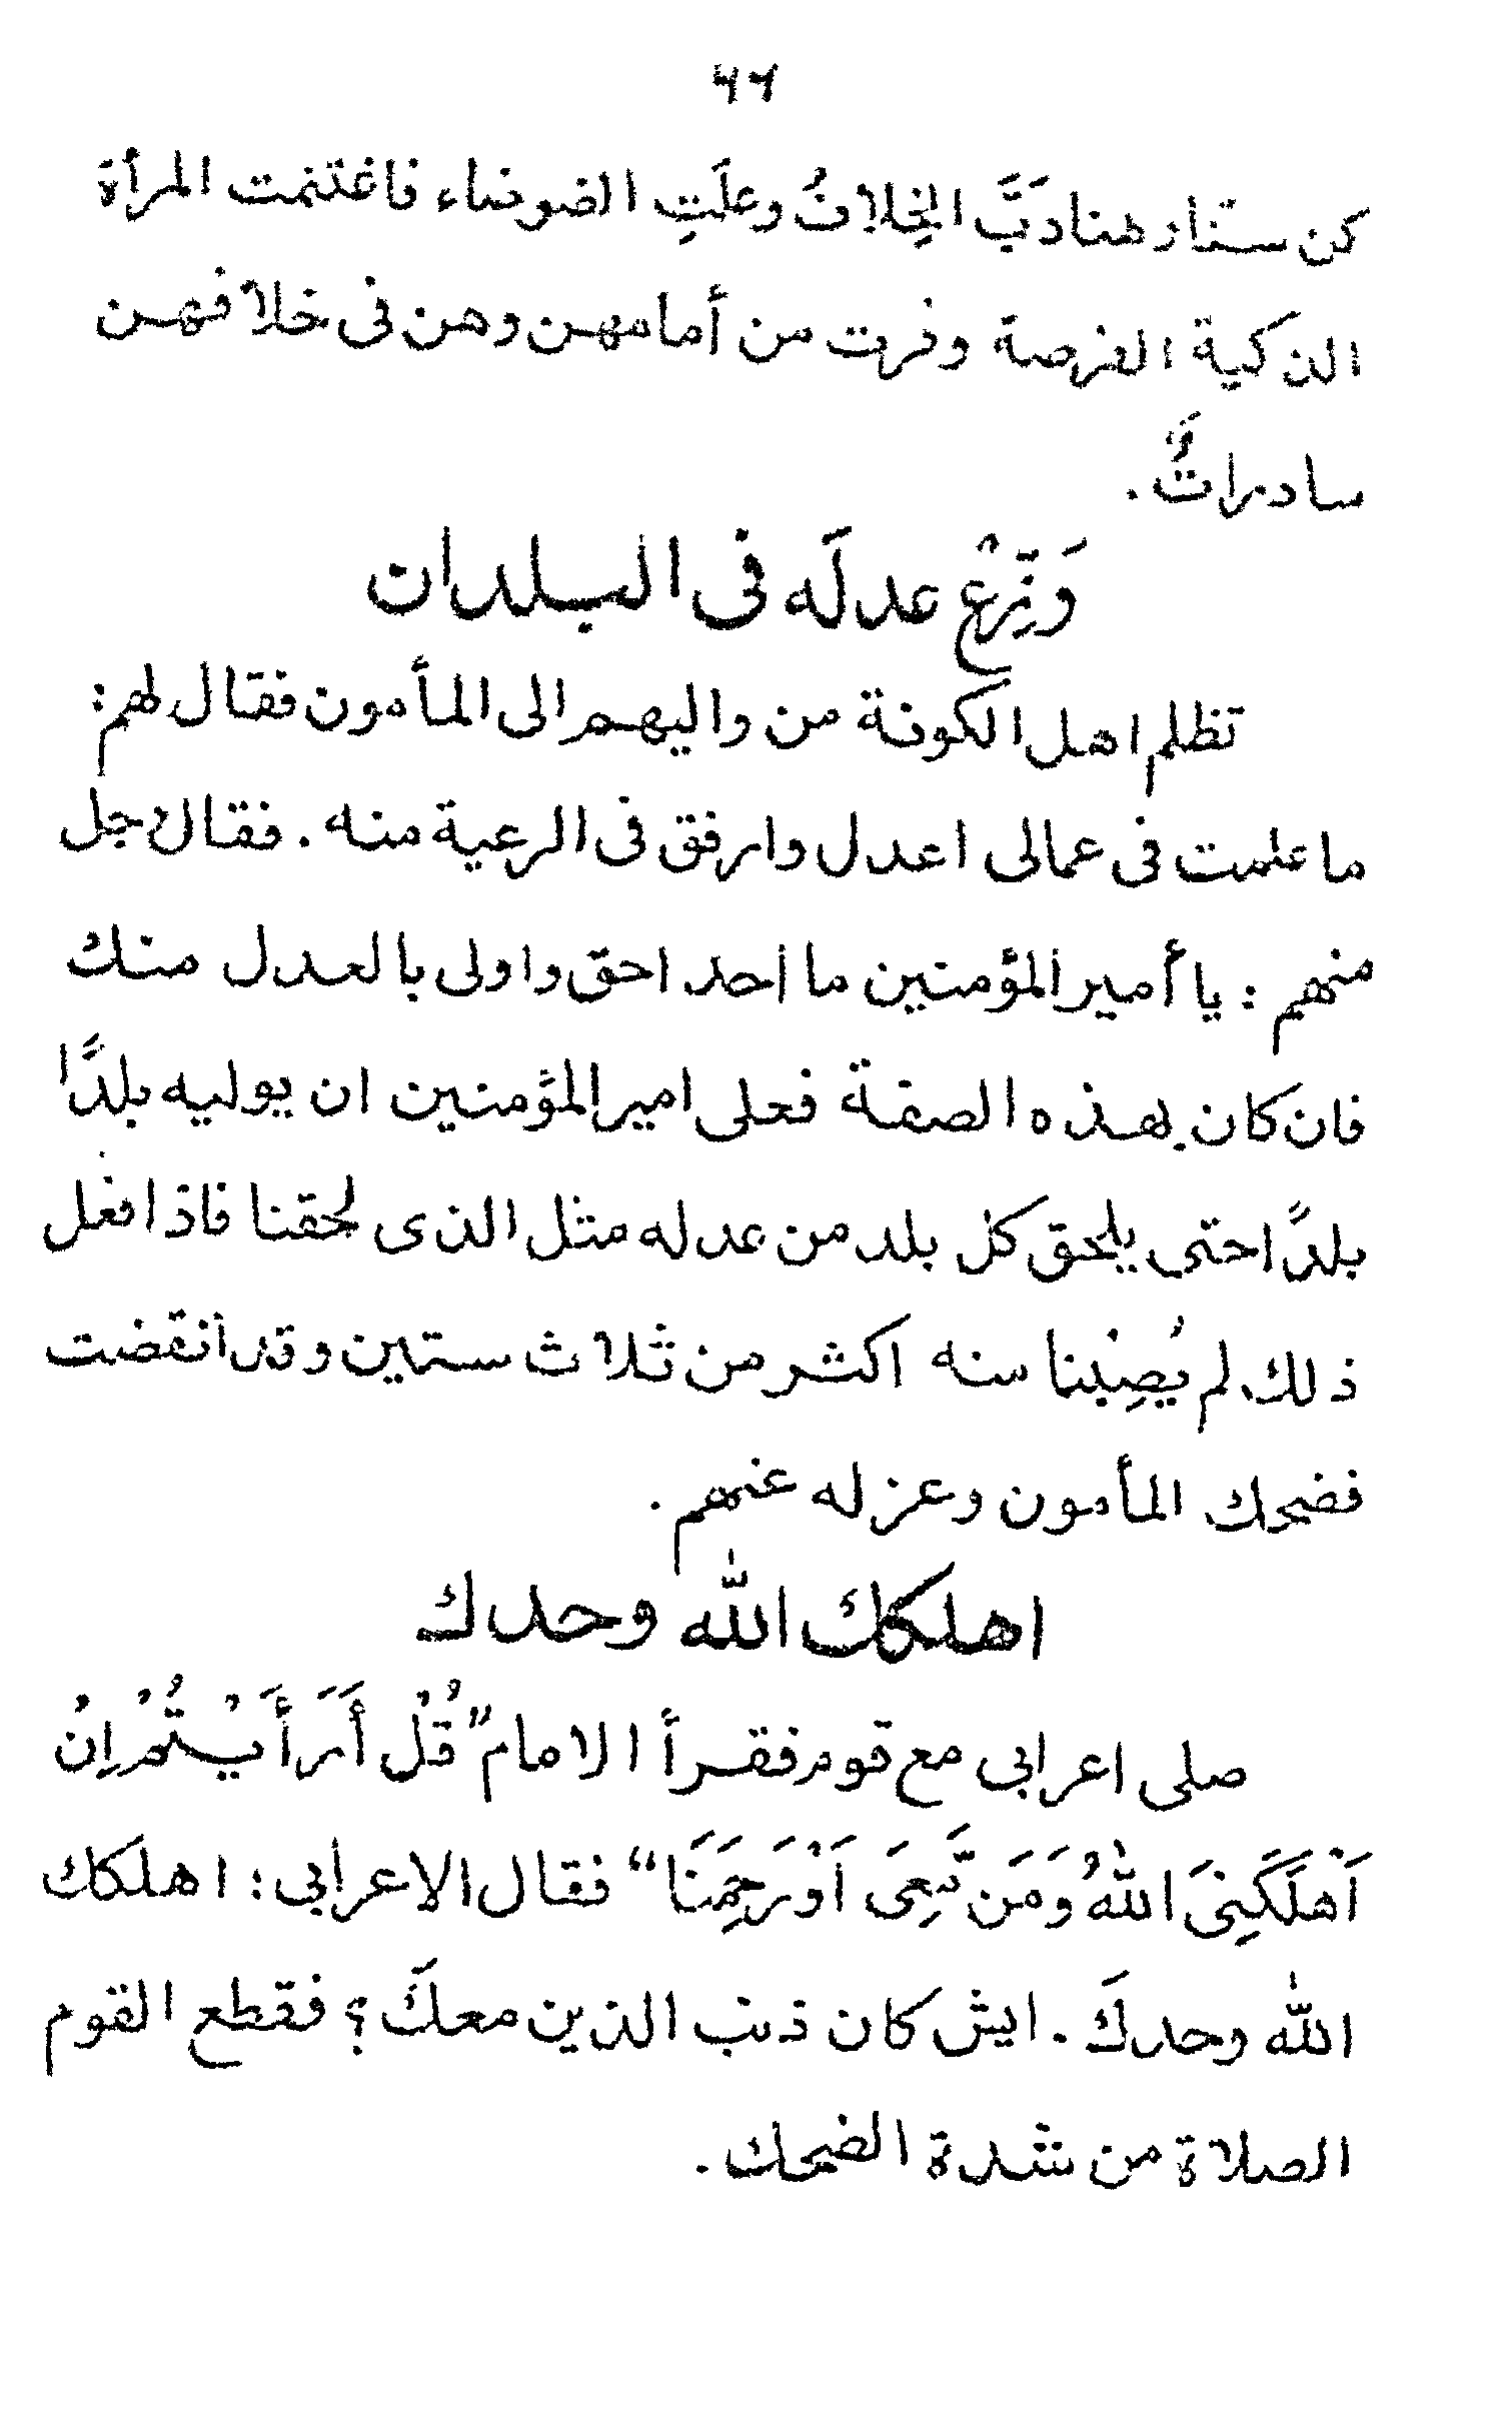 ۴۶
كن ستنار هنا دَبَّ الخِلافُ وعلَتِ الضوضاء فاغتنمت المرأة
الذكية الفرصة وفرت من أمامهن وهن فى خلافهن
سادراتٌ .
وَزِّعْ عدلَه فى البلدان
تظلم اهل الكوفة من واليهم الى المأمون فقال لهم:
ما علمت فى عمالى اعدل وارفق فى الرعية منه . فقال رجل
منهم : يا أمير المؤمنين ما احد احق واولى بالعدل منك
فان كان بهذه الصفة فعلى امير المؤمنين ان يوليه بلدًا
بلدًا حتى يلحق كل بلد من عدله مثل الذى لحقنا فاذا فعل
ذلك لم يُصِبْنا منه اكثر من ثلاث ستين وقد انقضت
فضحك المأمون وعزله عنهم .
اهلكك الله وحدك
صلى اعرابى مع قوم فقرأ الامام "قُلْ أَرَأَيْتُمْ اِنْ
اَهْلَكَنِىَ اللّٰهُ وَمَن مَّعِىَ اَوْ رَحِمَنَا" فقال الاعرابى : اهلكك
اللّٰه وحدكَ . ايش كان ذنب الذين معكَ ؟ فقطع القوم
الصلاة من شدة الضحك .